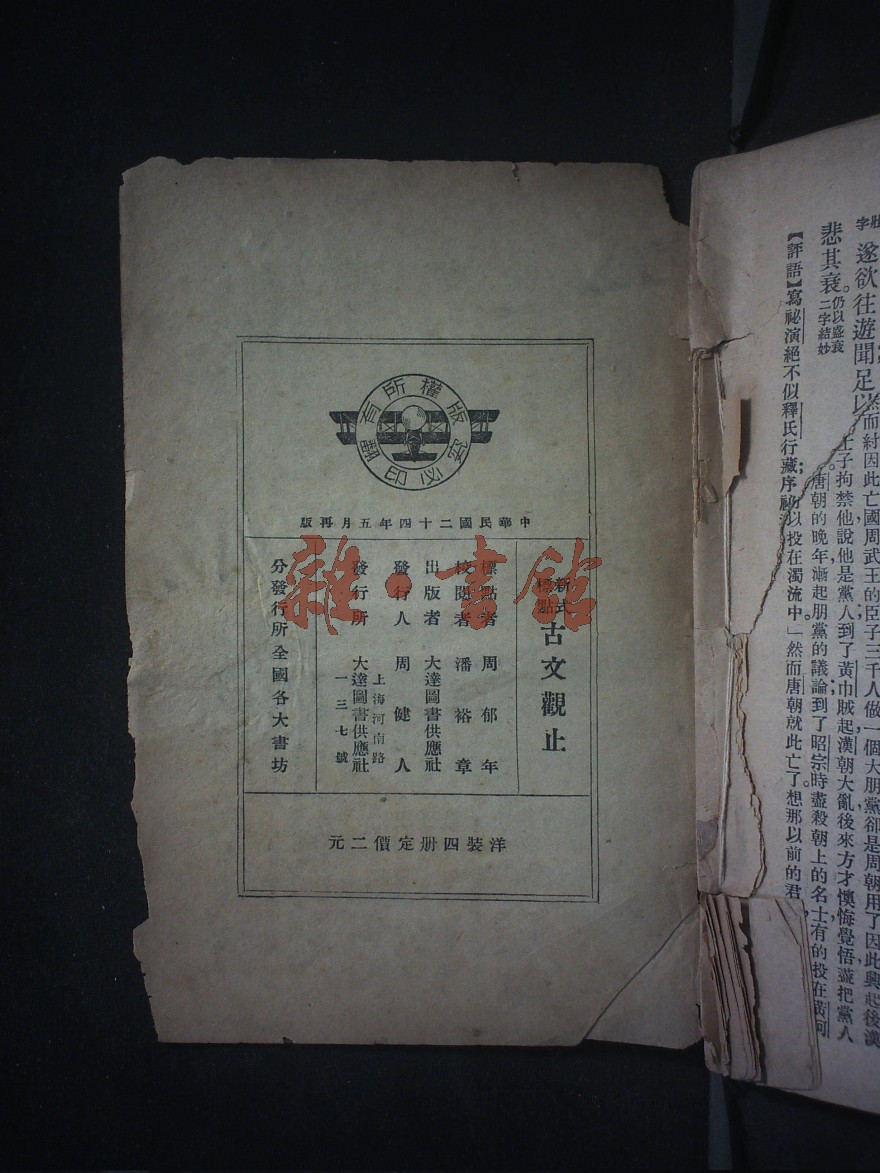 版權所有
翻印必究
中華民國二十四年五月再版
新式標點
古文觀止
標點者 周郁年
校閱者 潘裕章
出版者 大達圖書供應社
發行人 周健人
上海河南路
一三七號
發行所 大達圖書供應社
分發行所全國各大書坊
洋裝四册定價二元
雜·書館
遂欲往遊聞足以
悲其衰。仍以盛衰二字結妙
【評語】寫祕演絕不似釋氏行藏序祕
然而紂因此亡國周武王的臣子三千人做一個大朋黨卻是周朝用了因此興起後漢
王子拘禁他說他是黨人到了黃巾賊起漢朝大亂後來方才懊悔覺悟盡把黨人
。唐朝的晚年漸起朋黨的議論到了昭宗時盡殺朝上的名士有的投在黃河
以投在濁流中」然而唐朝就此亡了。想那以前的君